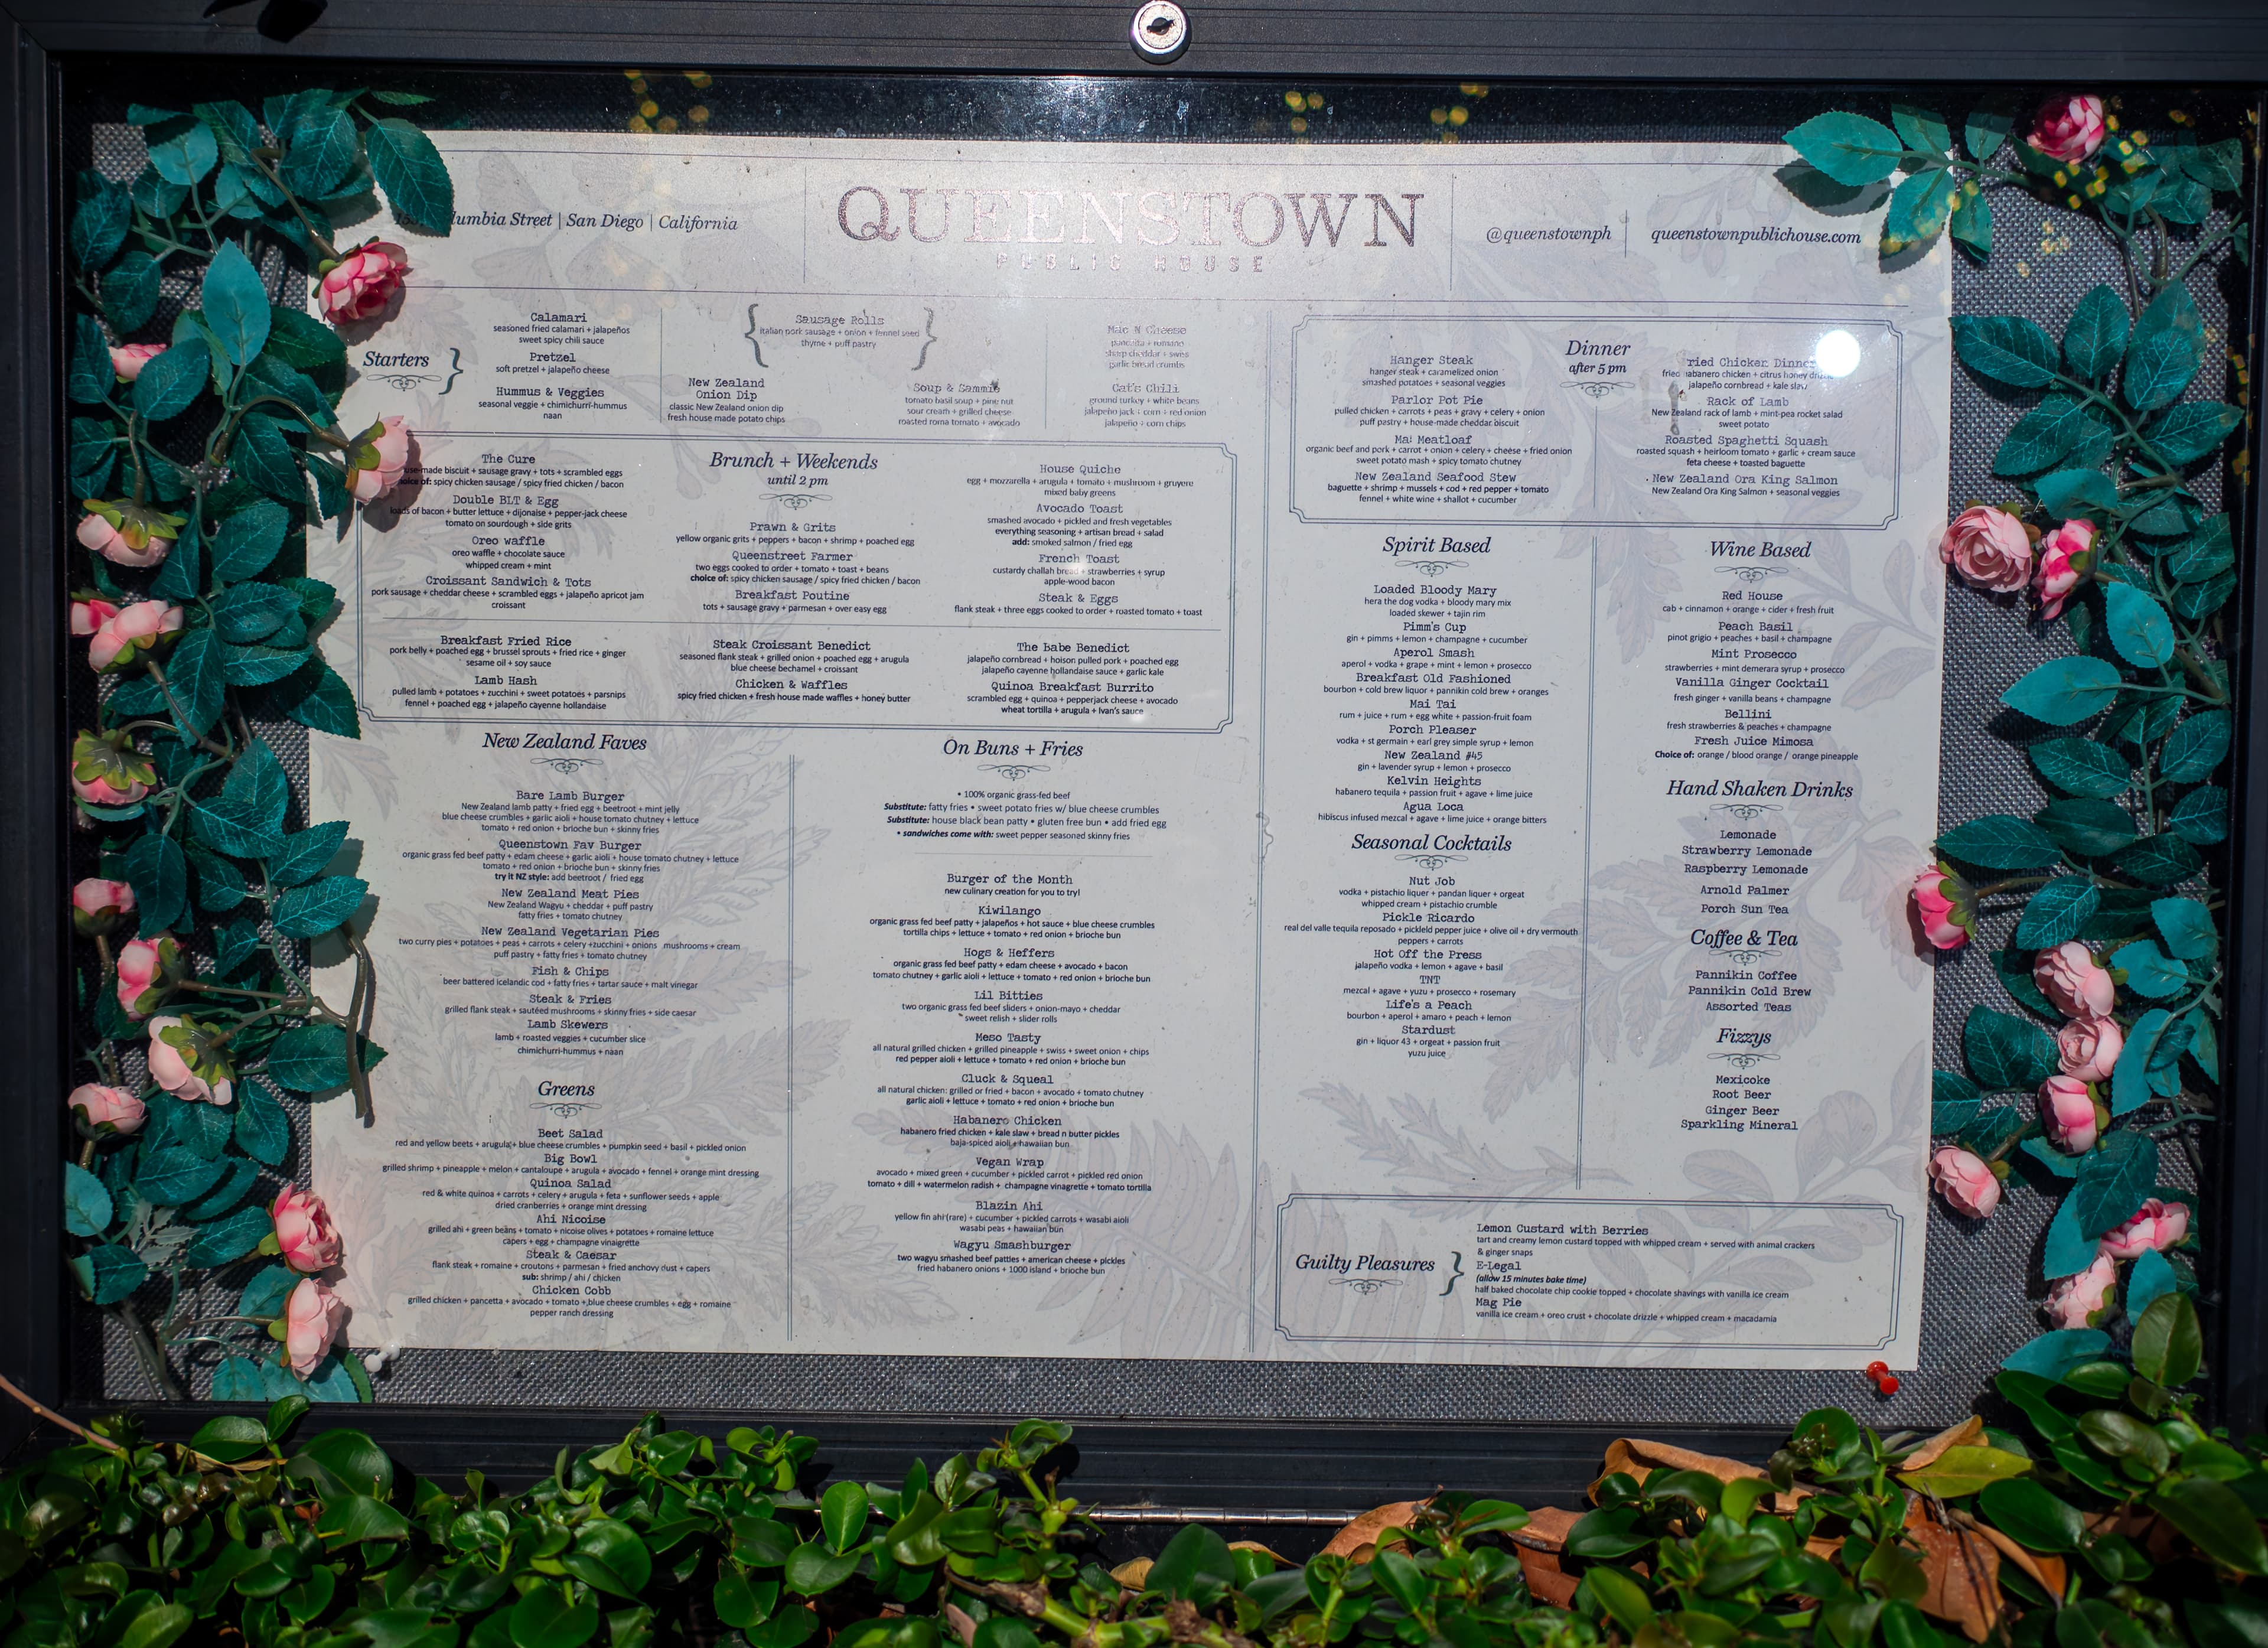 lumbia Street | San Diego | California
QUEENSTOWN
PUBLIC HOUSE
@queenstownph
queenstownpublichouse.com
Starters
Calamari
seasoned fried calamari + jalapeños
sweet spicy chili sauce
Pretzel
soft pretzel + jalapeño cheese
Hummus & Veggies
seasonal veggie + chimichurri-hummus
naan
Sausage Rolls
italian pork sausage + onion + fennel seed
thyme + puff pastry
New Zealand
Onion Dip
classic New Zealand onion dip
fresh house made potato chips
Soup & Sammie
tomato basil soup + pine nut
sour cream + grilled cheese
roasted roma tomato + avocado
Mac N Cheese
pancetta + romano
sharp cheddar + swiss
garlic bread crumbs
Cat's Chili
ground turkey + white beans
jalapeño jack + corn + red onion
jalapeño + corn chips
Brunch + Weekends
until 2 pm
The Cure
made biscuit + sausage gravy + tots + scrambled eggs
of: spicy chicken sausage / spicy fried chicken / bacon
Double BLT & Egg
loads of bacon + butter lettuce + dijonaise + pepper-jack cheese
tomato on sourdough + side grits
Oreo waffle
oreo waffle + chocolate sauce
whipped cream + mint
Croissant Sandwich & Tots
pork sausage + cheddar cheese + scrambled eggs + jalapeño apricot jam
croissant
Prawn & Grits
yellow organic grits + peppers + bacon + shrimp + poached egg
Queenstreet Farmer
two eggs cooked to order + tomato + toast + beans
choice of: spicy chicken sausage / spicy fried chicken / bacon
Breakfast Poutine
tots + sausage gravy + parmesan + over easy egg
House Quiche
egg + mozzarella + arugula + tomato + mushroom + gruyere
mixed baby greens
Avocado Toast
smashed avocado + pickled and fresh vegetables
everything seasoning + artisan bread + salad
add: smoked salmon / fried egg
French Toast
custardy challah bread + strawberries + syrup
apple-wood bacon
Steak & Eggs
flank steak + three eggs cooked to order + roasted tomato + toast
Breakfast Fried Rice
pork belly + poached egg + brussel sprouts + fried rice + ginger
sesame oil + soy sauce
Lamb Hash
pulled lamb + potatoes + zucchini + sweet potatoes + parsnips
fennel + poached egg + jalapeño cayenne hollandaise
Steak Croissant Benedict
seasoned flank steak + grilled onion + poached egg + arugula
blue cheese bechamel + croissant
Chicken & Waffles
spicy fried chicken + fresh house made waffles + honey butter
The Babe Benedict
jalapeño cornbread + hoison pulled pork + poached egg
jalapeño cayenne hollandaise sauce + garlic kale
Quinoa Breakfast Burrito
scrambled egg + quinoa + pepperjack cheese + avocado
wheat tortilla + arugula + Ivan's sauce
New Zealand Faves
Bare Lamb Burger
New Zealand lamb patty + fried egg + beetroot + mint jelly
blue cheese crumbles + garlic aioli + house tomato chutney + lettuce
tomato + red onion + brioche bun + skinny fries
Queenstown Fav Burger
organic grass fed beef patty + edam cheese + garlic aioli + house tomato chutney + lettuce
tomato + red onion + brioche bun + skinny fries
try it NZ style: add beetroot / fried egg
New Zealand Meat Pies
New Zealand Wagyu + cheddar + puff pastry
fatty fries + tomato chutney
New Zealand Vegetarian Pies
two curry pies + potatoes + peas + carrots + celery +zucchini + onions mushrooms + cream
puff pastry + fatty fries + tomato chutney
Fish & Chips
beer battered icelandic cod + fatty fries + tartar sauce + malt vinegar
Steak & Fries
grilled flank steak + sautéed mushrooms + skinny fries + side caesar
Lamb Skewers
lamb + roasted veggies + cucumber slice
chimichurri-hummus + naan
Greens
Beet Salad
red and yellow beets + arugula + blue cheese crumbles + pumpkin seed + basil + pickled onion
Big Bowl
grilled shrimp + pineapple + melon + cantaloupe + arugula + avocado + fennel + orange mint dressing
Quinoa Salad
red & white quinoa + carrots + celery + arugula + feta + sunflower seeds + apple
dried cranberries + orange mint dressing
Ahi Nicoise
grilled ahi + green beans + tomato + nicoise olives + potatoes + romaine lettuce
capers + egg + champagne vinaigrette
Steak & Caesar
flank steak + romaine + croutons + parmesan + fried anchovy dust + capers
sub: shrimp / ahi / chicken
Chicken Cobb
grilled chicken + pancetta + avocado + tomato + blue cheese crumbles + egg + romaine
pepper ranch dressing
On Buns + Fries
• 100% organic grass-fed beef
Substitute: fatty fries • sweet potato fries w/ blue cheese crumbles
Substitute: house black bean patty • gluten free bun • add fried egg
• sandwiches come with: sweet pepper seasoned skinny fries
Burger of the Month
new culinary creation for you to try!
Kiwilango
organic grass fed beef patty + jalapeños + hot sauce + blue cheese crumbles
tortilla chips + lettuce + tomato + red onion + brioche bun
Hogs & Heffers
organic grass fed beef patty + edam cheese + avocado + bacon
tomato chutney + garlic aioli + lettuce + tomato + red onion + brioche bun
Lil Bitties
two organic grass fed beef sliders + onion-mayo + cheddar
sweet relish + slider rolls
Meso Tasty
all natural grilled chicken + grilled pineapple + swiss + sweet onion + chips
red pepper aioli + lettuce + tomato + red onion + brioche bun
Cluck & Squeal
all natural chicken: grilled or fried + bacon + avocado + tomato chutney
garlic aioli + lettuce + tomato + red onion + brioche bun
Habanero Chicken
habanero fried chicken + kale slaw + bread n butter pickles
baja-spiced aioli + hawaiian bun
Vegan Wrap
avocado + mixed green + cucumber + pickled carrot + pickled red onion
tomato + dill + watermelon radish + champagne vinagrette + tomato tortilla
Blazin Ahi
yellow fin ahi (rare) + cucumber + pickled carrots + wasabi aioli
wasabi peas + hawaiian bun
Wagyu Smashburger
two wagyu smashed beef patties + american cheese + pickles
fried habanero onions + 1000 island + brioche bun
Dinner
after 5 pm
Hanger Steak
hanger steak + caramelized onion
smashed potatoes + seasonal veggies
Parlor Pot Pie
pulled chicken + carrots + peas + gravy + celery + onion
puff pastry + house-made cheddar biscuit
Ma: Meatloaf
organic beef and pork + carrot + onion + celery + cheese + fried onion
sweet potato mash + spicy tomato chutney
New Zealand Seafood Stew
baguette + shrimp + mussels + cod + red pepper + tomato
fennel + white wine + shallot + cucumber
ried Chicken Dinner
fried habanero chicken + citrus honey
jalapeño cornbread + kale slaw
Rack of Lamb
New Zealand rack of lamb + mint-pea rocket salad
sweet potato
Roasted Spaghetti Squash
roasted squash + heirloom tomato + garlic + cream sauce
feta cheese + toasted baguette
New Zealand Ora King Salmon
New Zealand Ora King Salmon + seasonal veggies
Spirit Based
Loaded Bloody Mary
hera the dog vodka + bloody mary mix
loaded skewer + tajin rim
Pimm's Cup
gin + pimms + lemon + champagne + cucumber
Aperol Smash
aperol + vodka + grape + mint + lemon + prosecco
Breakfast Old Fashioned
bourbon + cold brew liquor + pannikin cold brew + oranges
Mai Tai
rum + juice + rum + egg white + passion-fruit foam
Porch Pleaser
vodka + st germain + earl grey simple syrup + lemon
New Zealand #45
gin + lavender syrup + lemon + prosecco
Kelvin Heights
habanero tequila + passion fruit + agave + lime juice
Agua Loca
hibiscus infused mezcal + agave + lime juice + orange bitters
Seasonal Cocktails
Nut Job
vodka + pistachio liquer + pandan liquer + orgeat
whipped cream + pistachio crumble
Pickle Ricardo
real del valle tequila reposado + pickleld pepper juice + olive oil + dry vermouth
peppers + carrots
Hot Off the Press
jalapeño vodka + lemon + agave + basil
TNT
mezcal + agave + yuzu + prosecco + rosemary
Life's a Peach
bourbon + aperol + amaro + peach + lemon
Stardust
gin + liquor 43 + orgeat + passion fruit
yuzu juice
Wine Based
Red House
cab + cinnamon + orange + cider + fresh fruit
Peach Basil
pinot grigio + peaches + basil + champagne
Mint Prosecco
strawberries + mint demerara syrup + prosecco
Vanilla Ginger Cocktail
fresh ginger + vanilla beans + champagne
Bellini
fresh strawberries & peaches + champagne
Fresh Juice Mimosa
Choice of: orange / blood orange / orange pineapple
Hand Shaken Drinks
Lemonade
Strawberry Lemonade
Raspberry Lemonade
Arnold Palmer
Porch Sun Tea
Coffee & Tea
Pannikin Coffee
Pannikin Cold Brew
Assorted Teas
Fizzys
Mexicoke
Root Beer
Ginger Beer
Sparkling Mineral
Guilty Pleasures
Lemon Custard with Berries
tart and creamy lemon custard topped with whipped cream + served with animal crackers
& ginger snaps
E-Legal
(allow 15 minutes bake time)
half baked chocolate chip cookie topped + chocolate shavings with vanilla ice cream
Mag Pie
vanilla ice cream + oreo crust + chocolate drizzle + whipped cream + macadamia